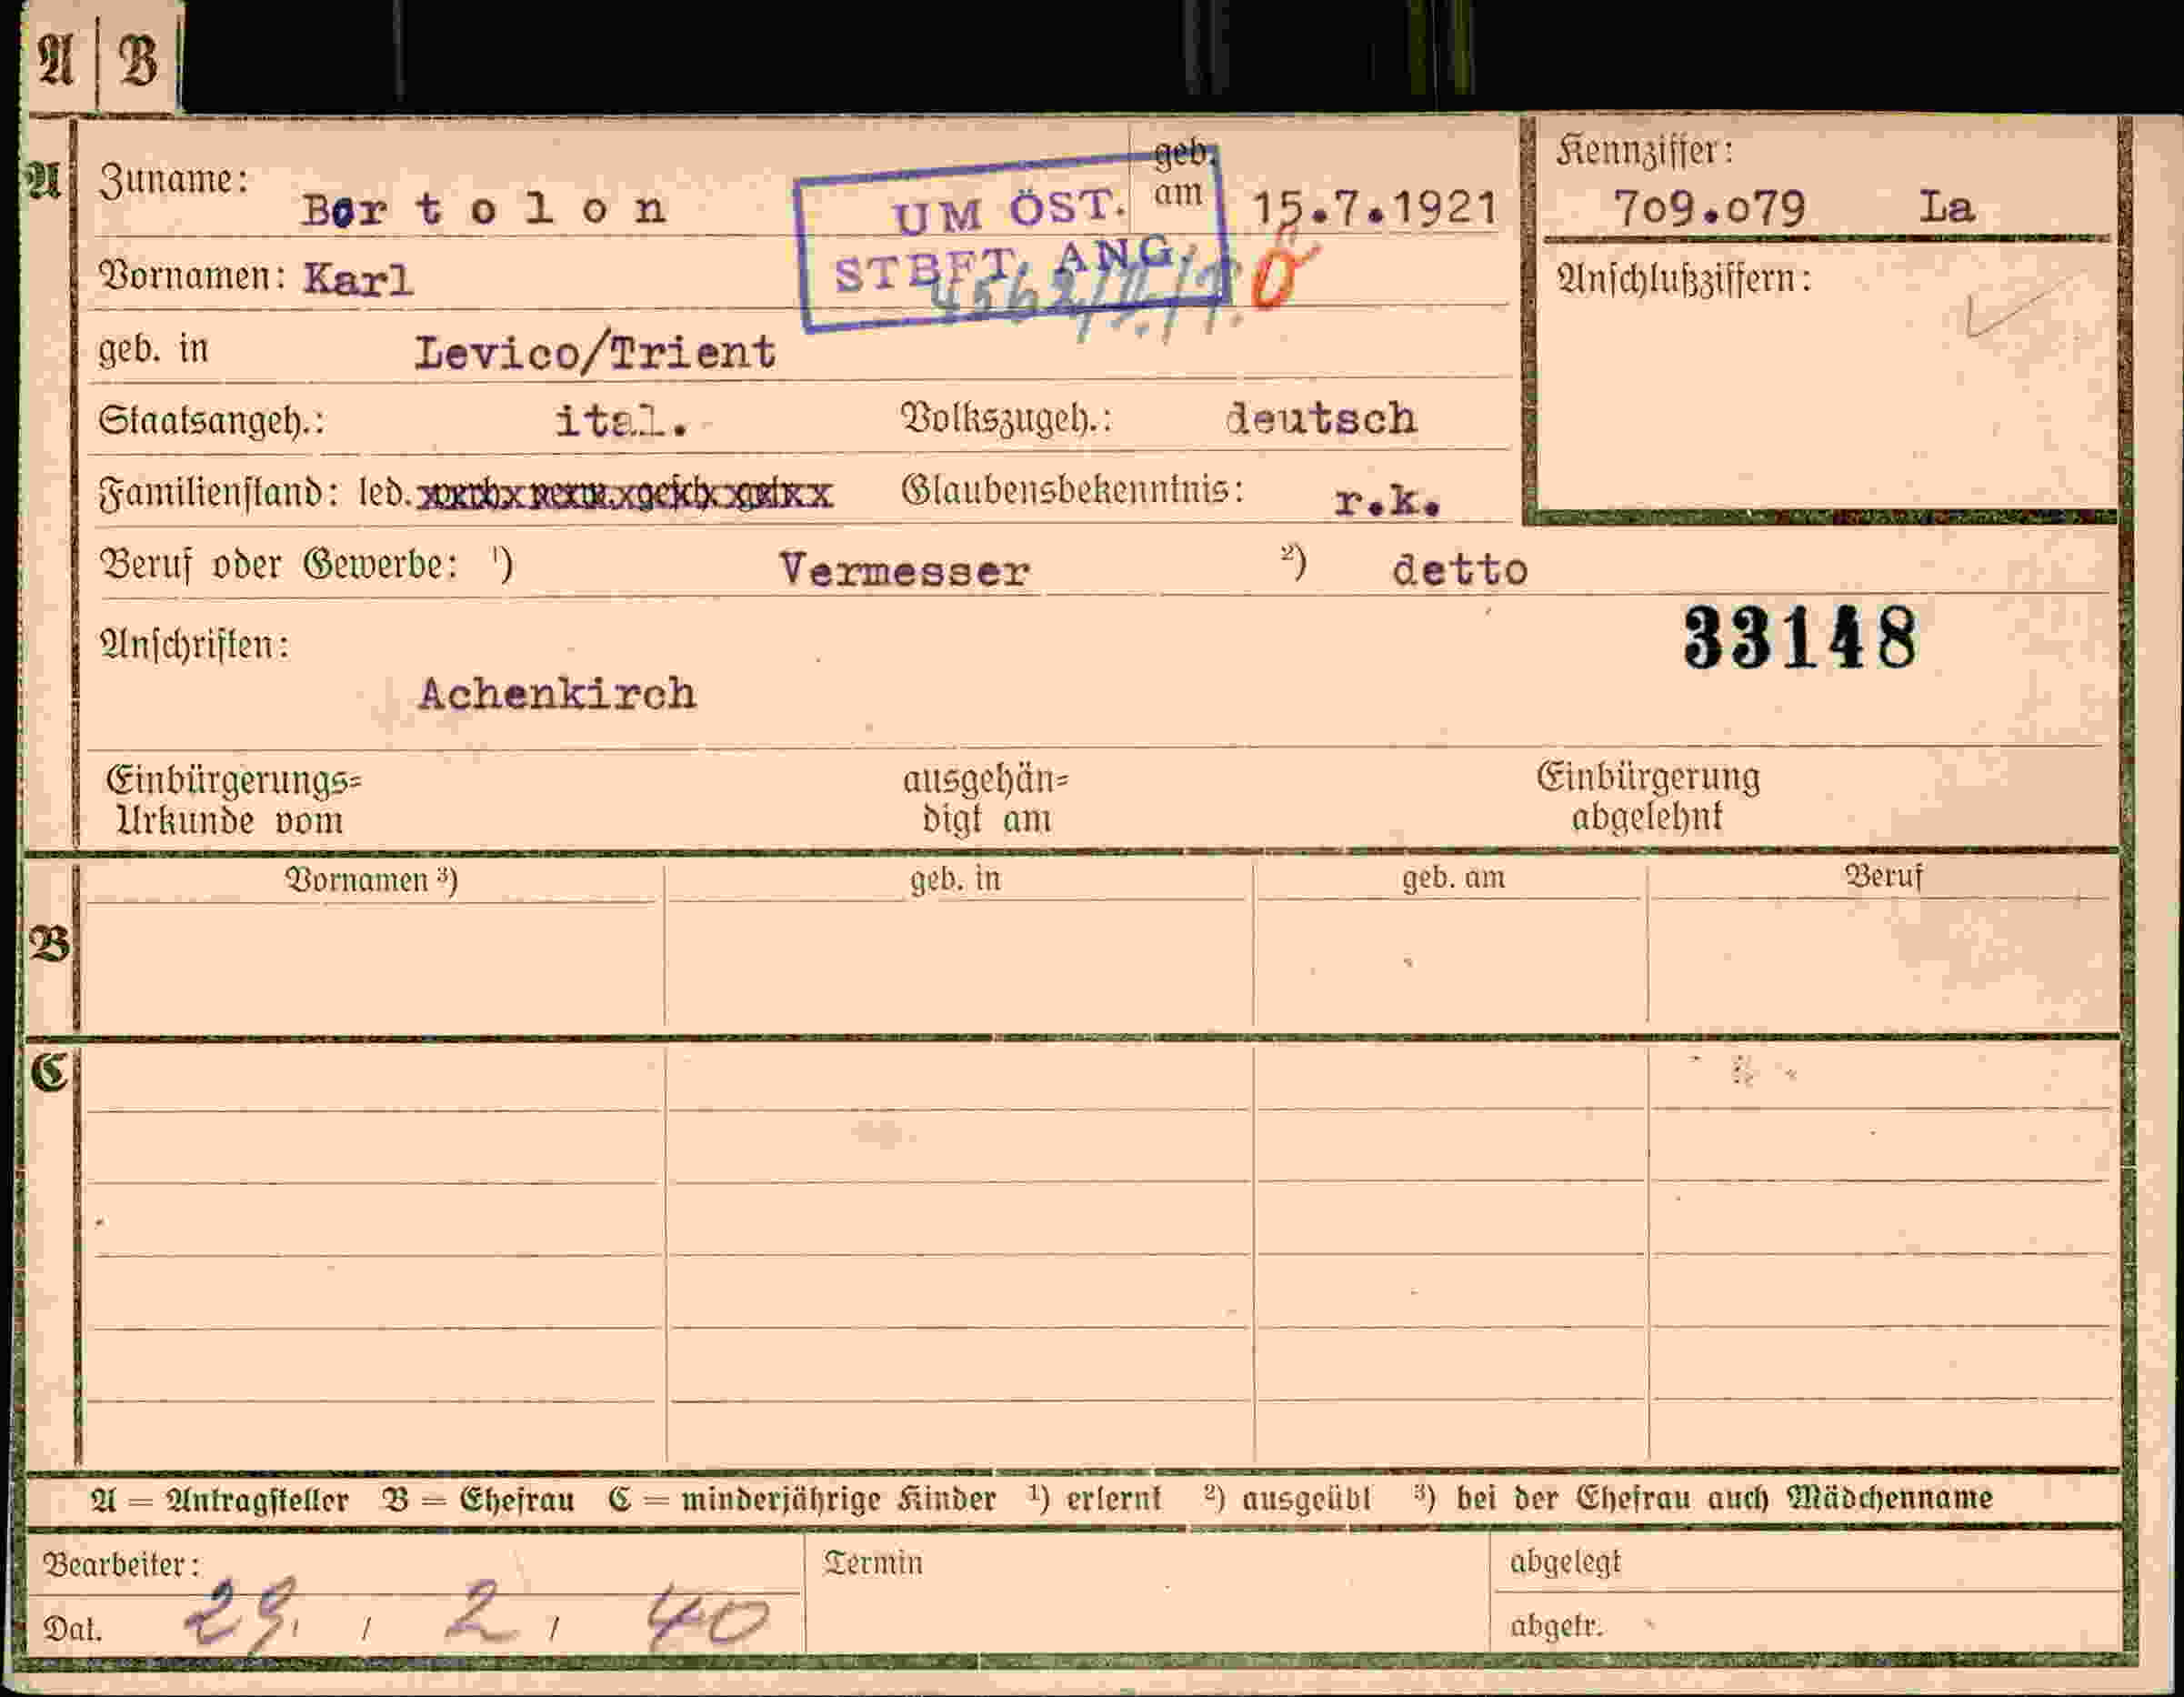 A | B
A
Zuname: Bertolon
geb. am 15.7.1921
UM ÖST.
STBFT. ANG.
Kennziffer:
7o9.o79 La
Vornamen: Karl
Ö
Anschlußziffern:
geb. in Levico/Trient
Staatsangeh.: ital. Volkszugeh.: deutsch
Familienstand: led. Glaubensbekenntnis: r.k.
Beruf oder Gewerbe: ¹) Vermesser ²) detto
33148
Anschriften:
Achenkirch
Einbürgerungs=
Urkunde vom
ausgehän=
digt am
Einbürgerung
abgelehnt
B
Vornamen ³) geb. in geb. am Beruf
C
A = Antragsteller B = Ehefrau C = minderjährige Kinder ¹) erlernt ²) ausgeübt ³) bei der Ehefrau auch Mädchenname
Bearbeiter: Termin abgelegt
Dat. 29. / 2 / 40 abgetr.